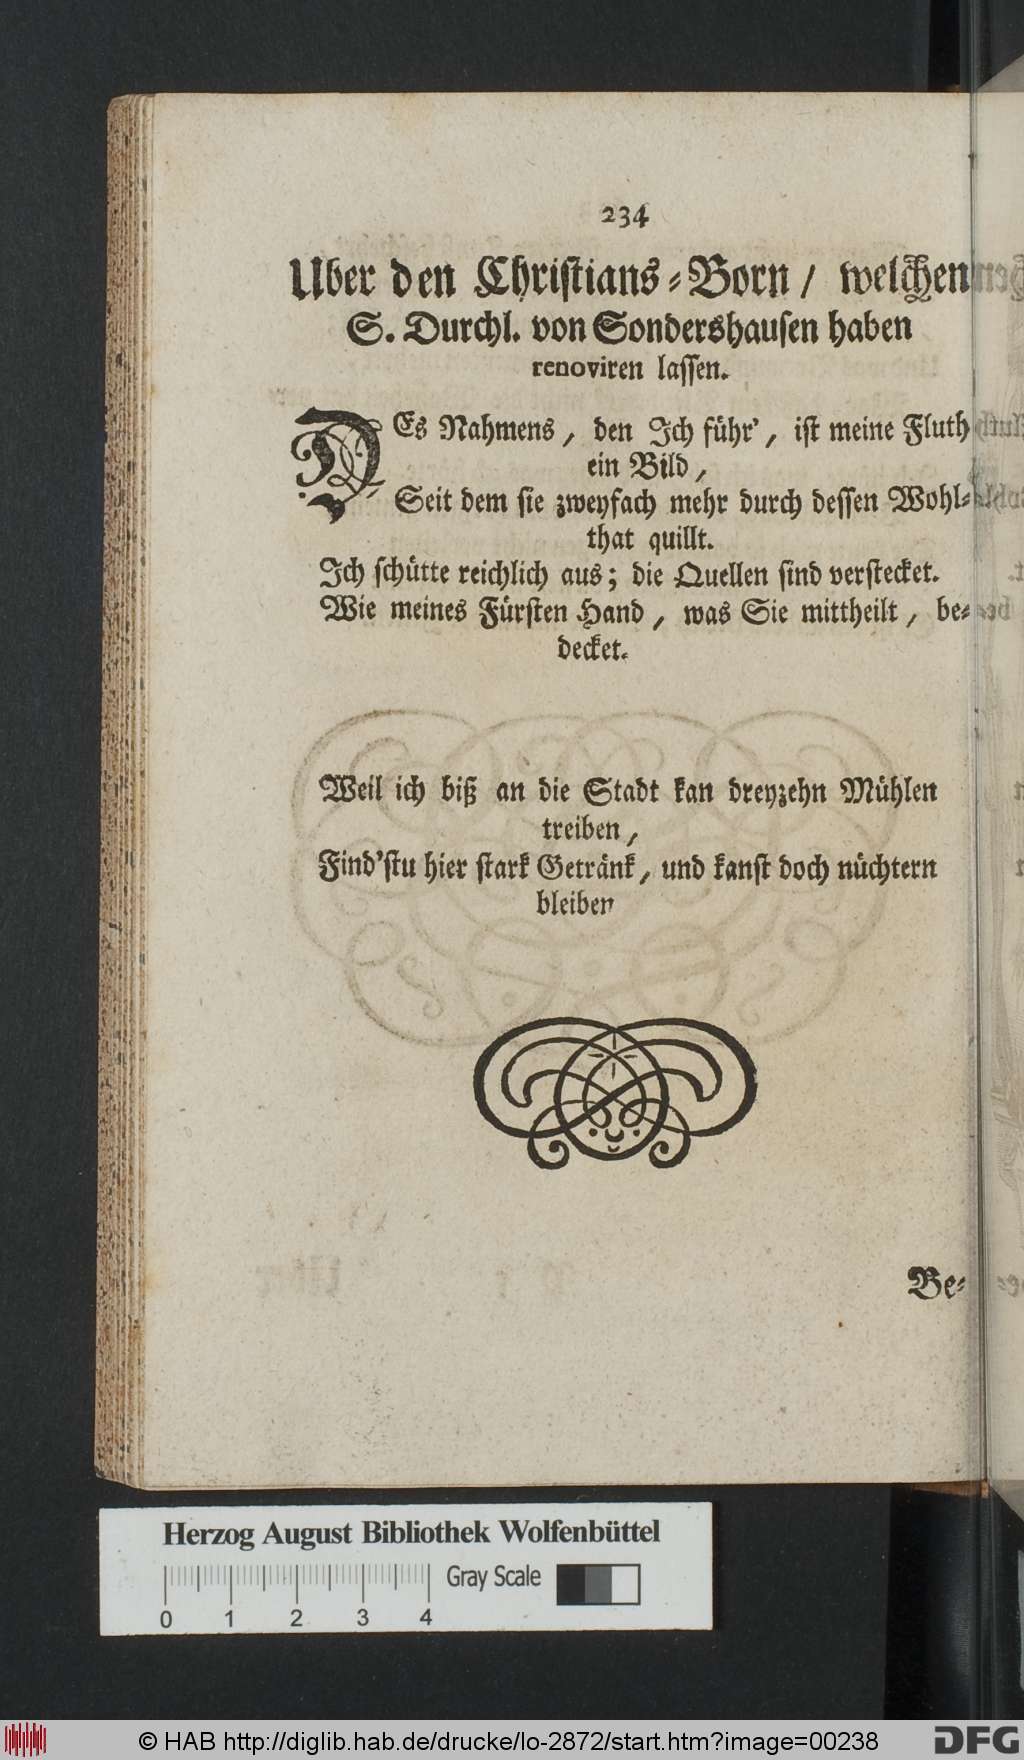 234
Uber den Christians-Born / welchen
S. Durchl. von Sondershausen haben
renoviren lassen.
DEs Nahmens, den Ich führ', ist meine Fluth
ein Bild,
Seit dem sie zweyfach mehr durch dessen Wohl-
that quillt.
Ich schütte reichlich aus; die Quellen sind verstecket.
Wie meines Fürsten Hand, was Sie mittheilt, be-
decket.
Weil ich biß an die Stadt kan dreyzehn Mühlen
treiben,
Find'stu hier stark Getränk, und kanst doch nüchtern
bleiben
Be-
Herzog August Bibliothek Wolfenbüttel
Gray Scale
0 1 2 3 4
© HAB http://diglib.hab.de/drucke/lo-2872/start.htm?image=00238
DFG